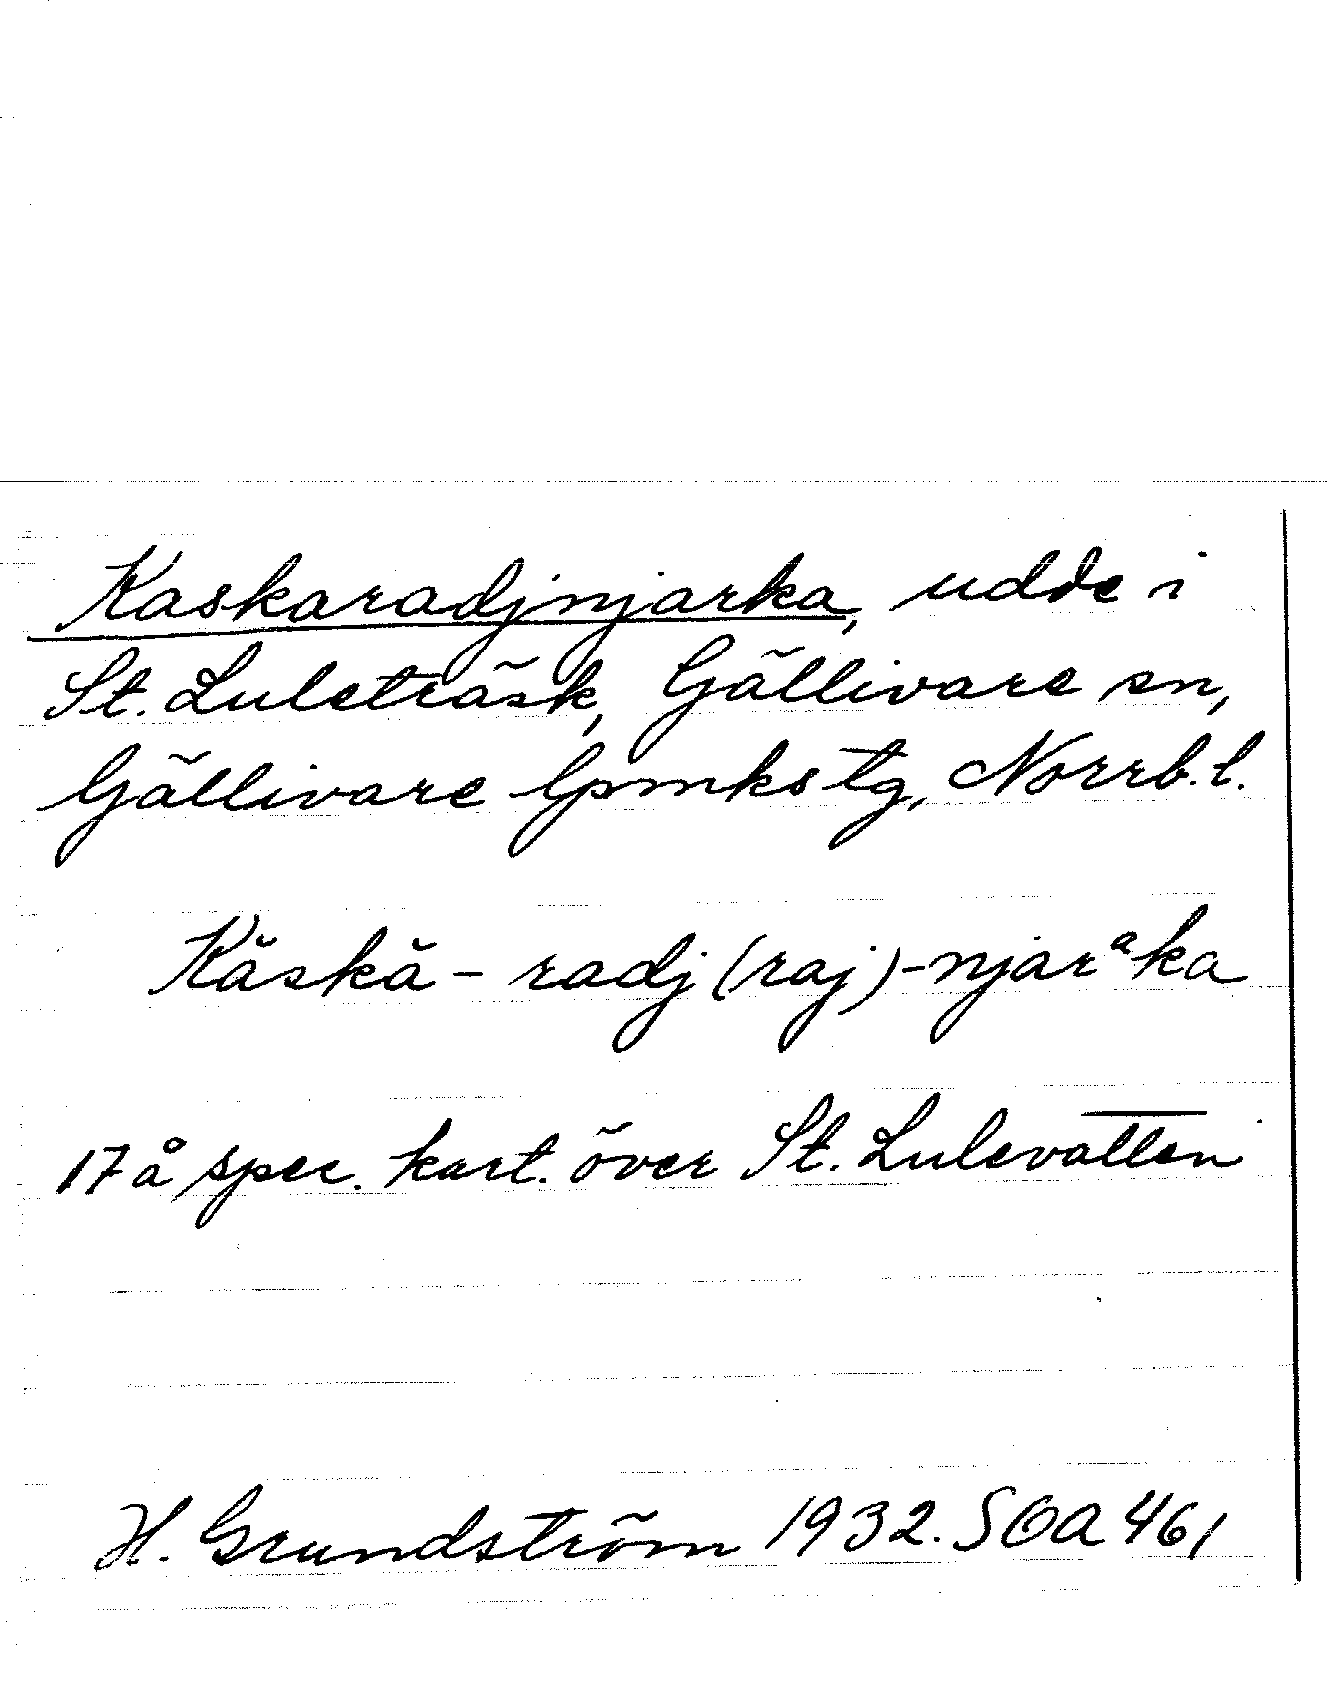 Kaskaradjnjarka, udde i
St. Luleträsk, Gällivare sn,
Gällivare lpmkstg, Norrb. l.
Kǎskǎ - radj (raj) - njarᵃka
17 å spec. kart. över St. Lulevatten
H. Grundström 1932. SOA 461